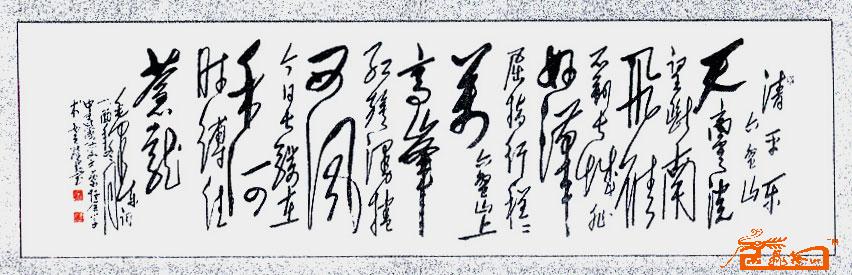 清平乐
六盘山
天高雲淡
望断南
飞雁
不到长城非
好漢
屈指行程二
萬六盘山上
高峰
红旗漫捲
西风
今日长缨在
手何
时缚住
蒼龙
毛泽东词